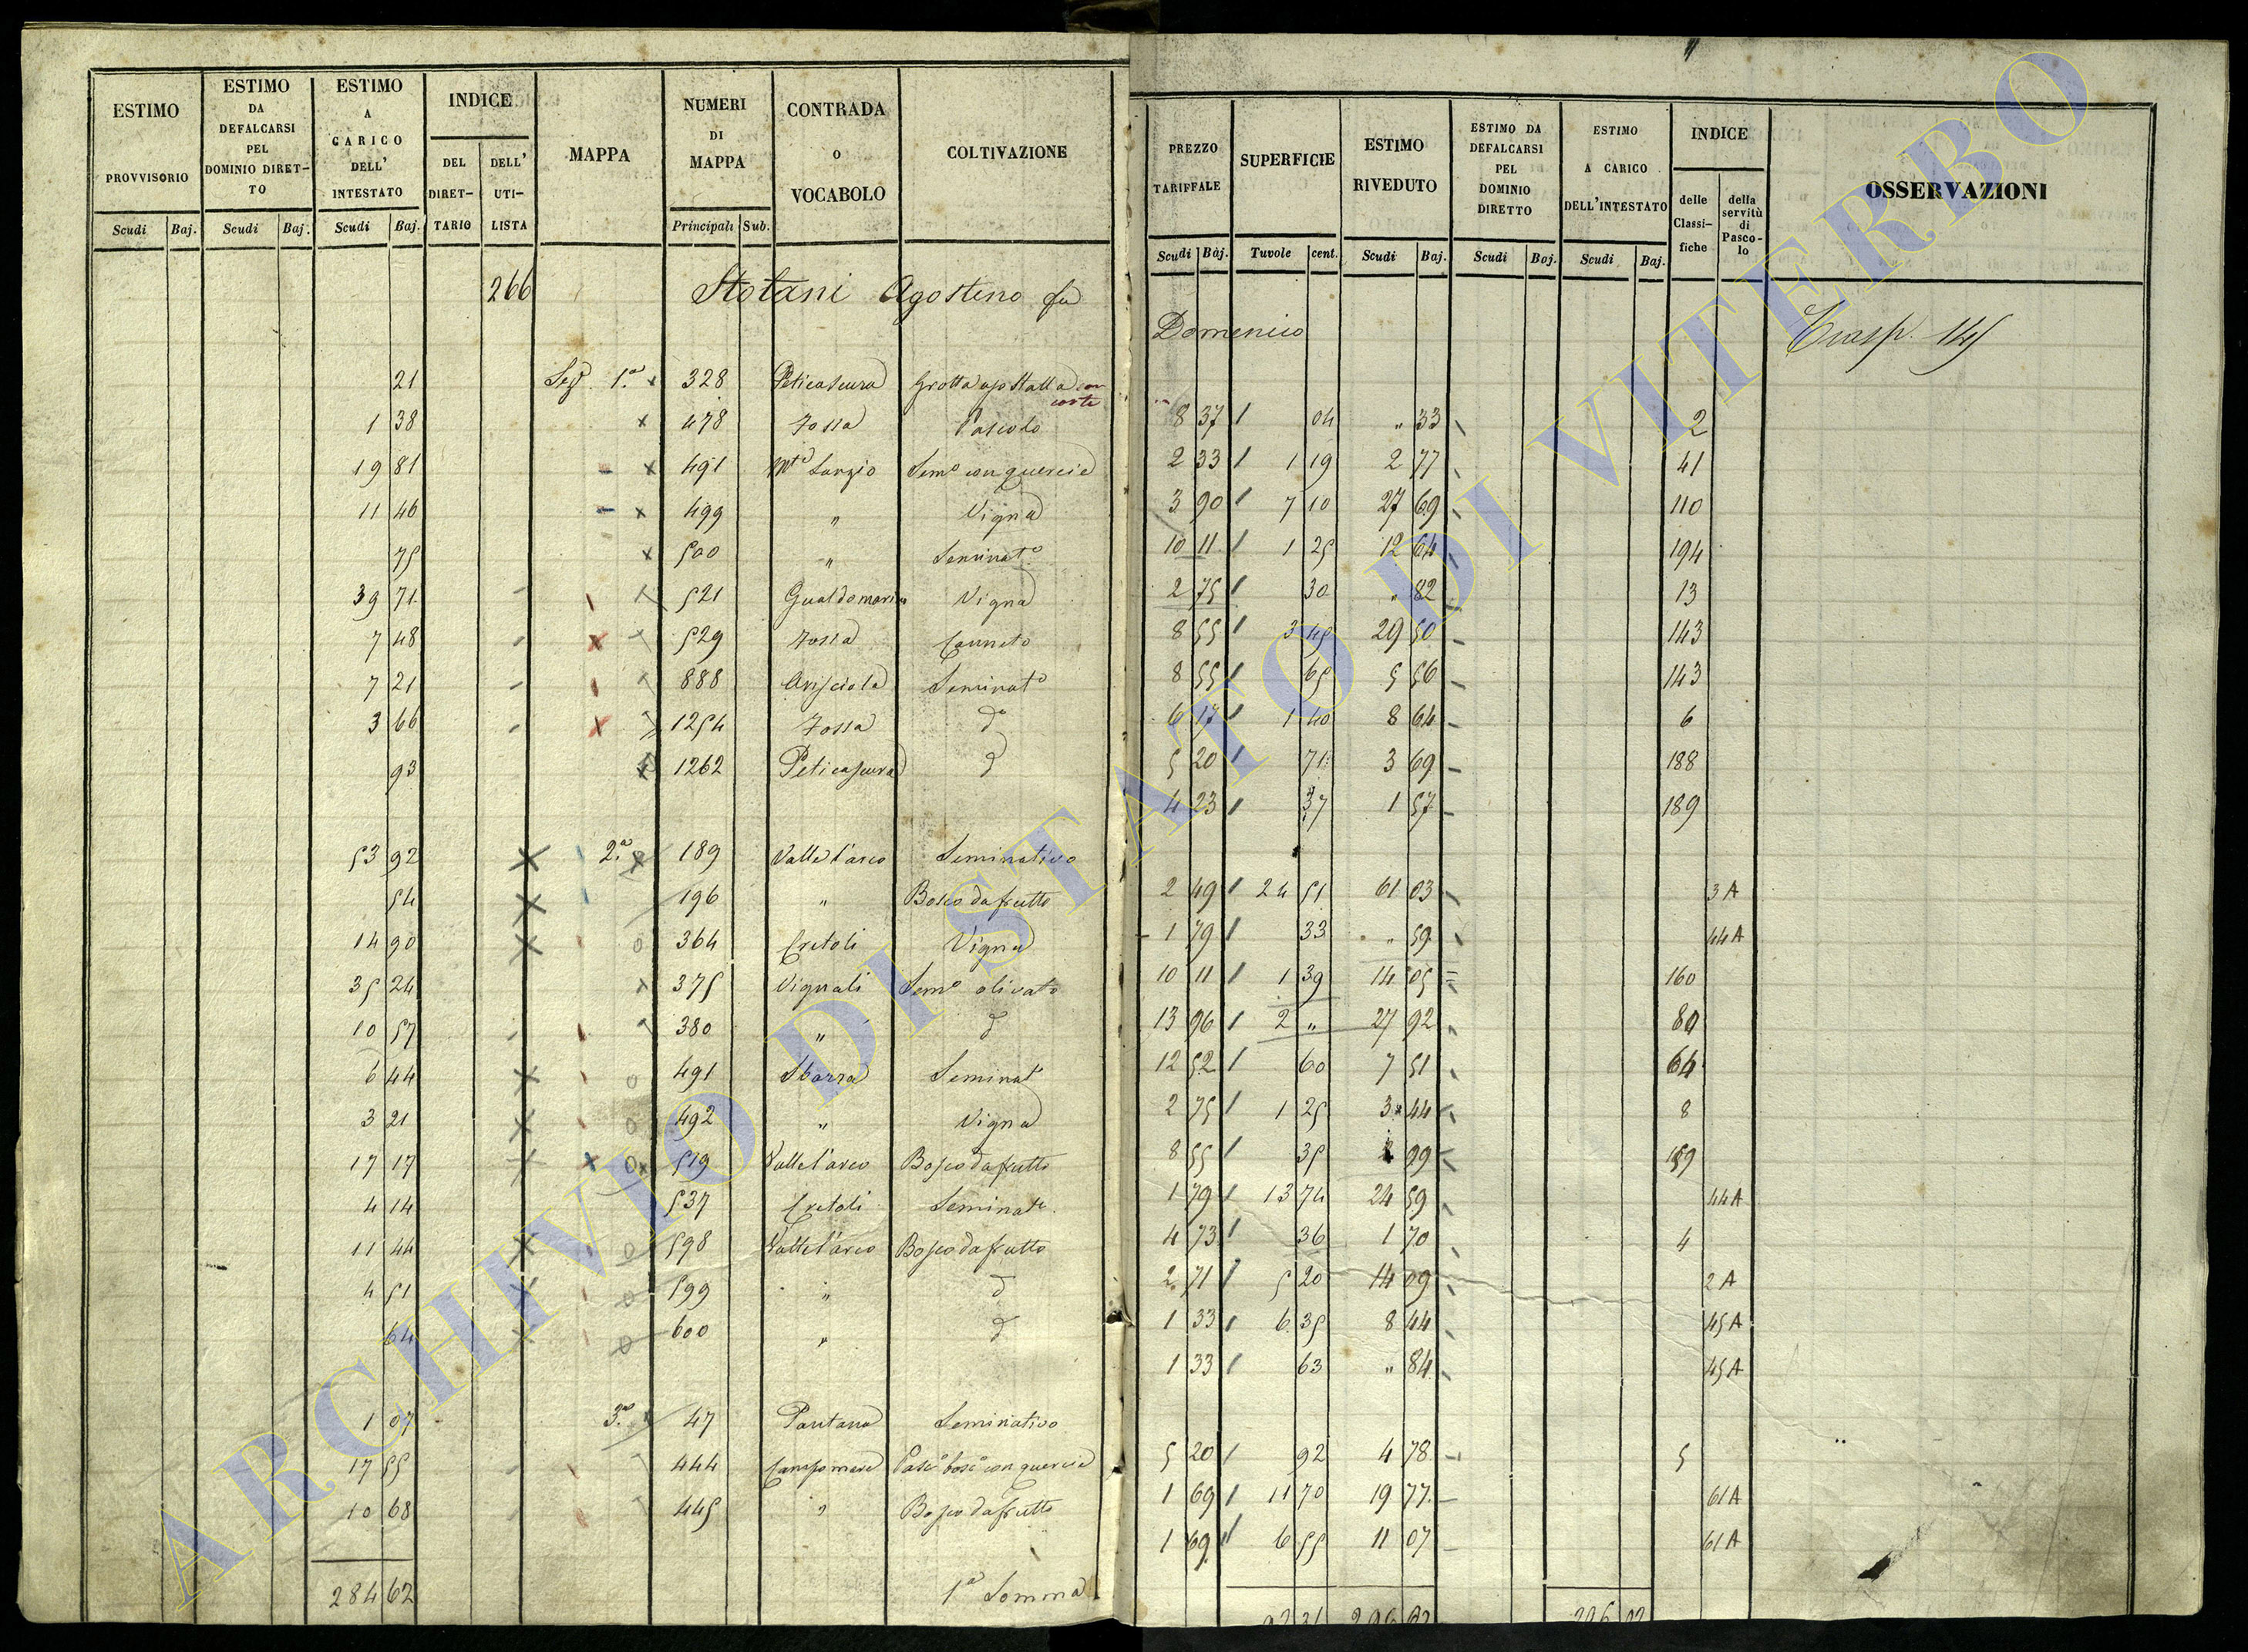 ESTIMO PROVVISORIO Scudi Baj.
ESTIMO DA DEFALCARSI PEL DOMINIO DIRETTO Scudi Baj.
ESTIMO A CARICO DELL' INTESTATO Scudi Baj.
INDICE DEL DIRETTARIO DELL' UTILISTA
MAPPA
NUMERI DI MAPPA Principali Sub.
CONTRADA O VOCABOLO
COLTIVAZIONE
PREZZO TARIFFALE Scudi Baj.
SUPERFICIE Tuvole cent.
ESTIMO RIVEDUTO Scudi Baj.
ESTIMO DA DEFALCARSI PEL DOMINIO DIRETTO Scudi Baj.
ESTIMO A CARICO DELL'INTESTATO Scudi Baj.
INDICE delle Classifiche della servitù di Pascolo
OSSERVAZIONI
266 Stotani Agostino fu Domenico
Trasp. 145
21 Sez. 1.a 328 Peticascura Grotta apo Stalla con corte 8 37 04 " 33 2
1 38 478 Fossa Pascolo 2 33 1 19 2 77 41
19 81 491 Mte Lorgio Sem.o con quercie 3 90 7 10 27 69 110
11 46 499 " Vigna 10 11 1 25 12 64 194
75 500 " Seminat.o 2 75 30 " 82 13
39 71 521 Gualdomarin Vigna 8 55 3 45 29 50 143
7 48 529 Fossa Canneto 8 55 65 5 56 143
7 21 888 Arisciola Seminat.o 6 17 1 40 8 64 6
3 66 1254 Fossa d.o 5 20 71 3 69 188
93 1262 Peticascura d 4 23 37 1 57 189
53 92 2.a 189 Valle l'arco Seminativo 2 49 24 51 61 03 3 A
54 196 " Bosco da frutto 1 79 33 " 59 44 A
14 90 364 Cretoli Vigna 10 11 1 39 14 05 160
35 24 375 Vignali Sem.o olivato 13 96 2 " 27 92 80
10 57 380 " d 12 52 60 7 51 64
6 44 491 Sbarra Seminat. 2 75 1 25 3 44 8
3 21 492 " Vigna 8 55 35 2 99 159
17 17 519 Valle l'arco Bosco da frutto 1 79 13 74 24 59 44 A
4 14 537 Cretoli Seminat. 4 73 36 1 70 4
11 44 598 Valle l'arco Bosco da frutto 2 71 5 20 14 09 2 A
4 51 599 " d 1 33 6 35 8 44 45 A
64 600 " d 1 33 63 " 84 45 A
1 07 3.a 47 Pantana Seminativo 5 20 92 4 78 5
17 55 444 Campo mare Pasc.o bosc.o con quercie 1 69 11 70 19 77 61 A
10 68 445 " Bosco da frutto 1 69 6 55 11 07 61 A
284 62 1.a Somma
ARCHIVIO DI STATO DI VITERBO